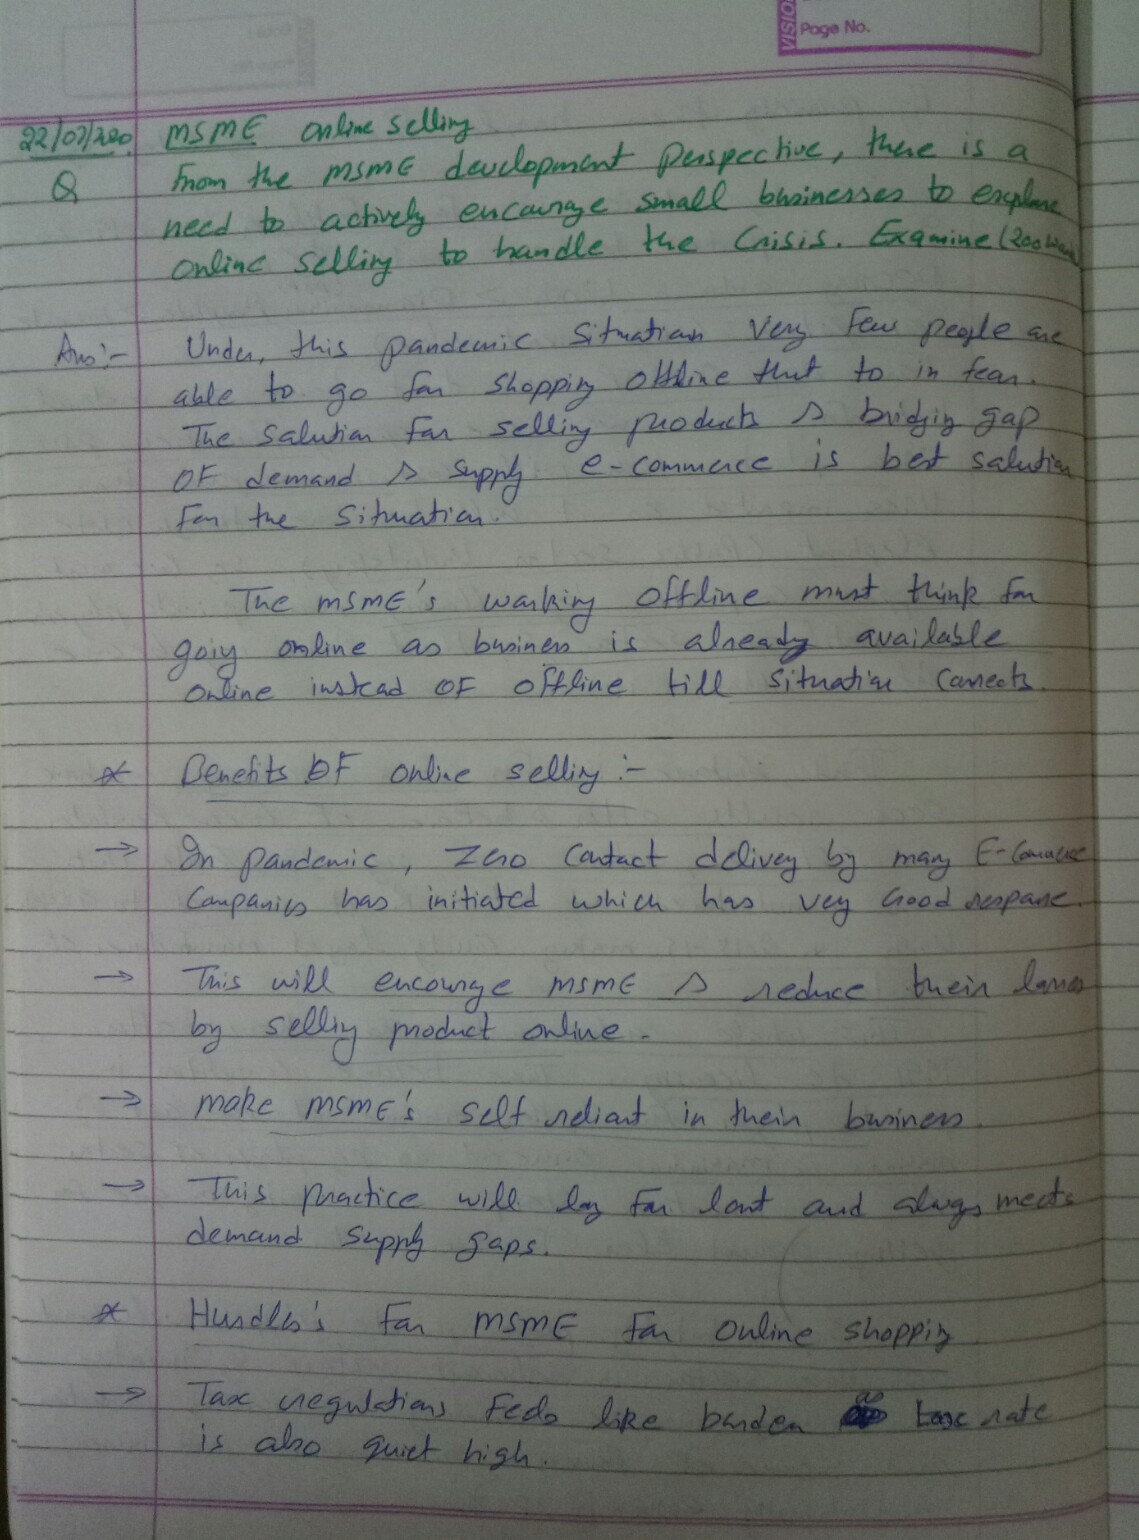 VISIO
Page No.
22/07/2020 MSME Online Selling
Q From the MSME development perspective, there is a
need to actively encourage small businesses to explore
online selling to handle the Crisis. Examine (200 words
Ans:- Under, this pandemic situation very few people are
able to go for shopping offline that to in fear.
The Salution for selling products & bridging gap
OF demand & supply e-commerce is best salution
For the Situation.
The MSME's working offline must think for
going online as business is already available
online instead OF offline till situation Corrects.
* Benefits OF online selling :-
→ In pandemic, Zero Contact delivey by many E-Commerce
Companies has initiated which has very Good respone.
→ This will encourge MSME & reduce their losses
by selling product online.
→ make MSME's self reliant in their business.
→ This practice will lay for and always meets
demand supply gaps.
* Hurdles's For MSME For Online shopping
→ Tax regulations Feels like burden as tax rate
is also quiet high.